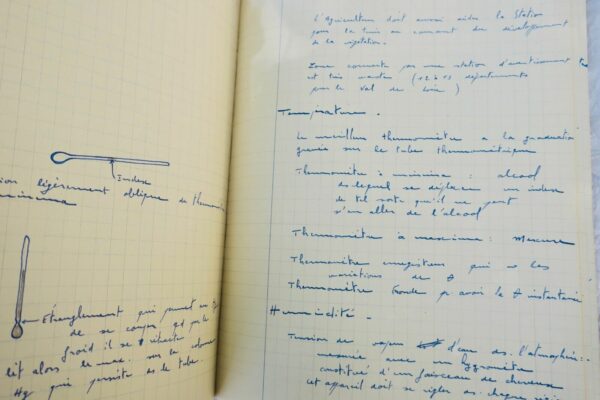 Index
légèrement oblique du thermomètre
minima
Étranglement qui permet au
de se couper qd par le
froid il se rétracte
lit alors le max. sur la colonne
Hg qui persiste ds le tube.
L'Agriculteur doit aussi aider la Station
pour la tenir au courant du développement
de la végétation.
Zone couverte par une station d'avertissement
est très vaste (12 à 13 départements
pour le Val de Loire)
Température.
Le meilleur thermomètre a la graduation
gravée sur le tube thermométrique
Thermomètre à minima : alcool
ds lequel se déplace un index
de tel sorte qu'il ne peut
s'en aller de l'alcool
Thermomètre à maxima : Mercure
Thermomètre enregistreur pr les
variations de θ
Thermomètre fronde pr avoir la θ instantanée
Humidité.
Tension de vapeur d'eau ds. l'atmosphère :
mesurée avec un hygromètre
constitué d'un faisceau de cheveux
cet appareil doit se régler